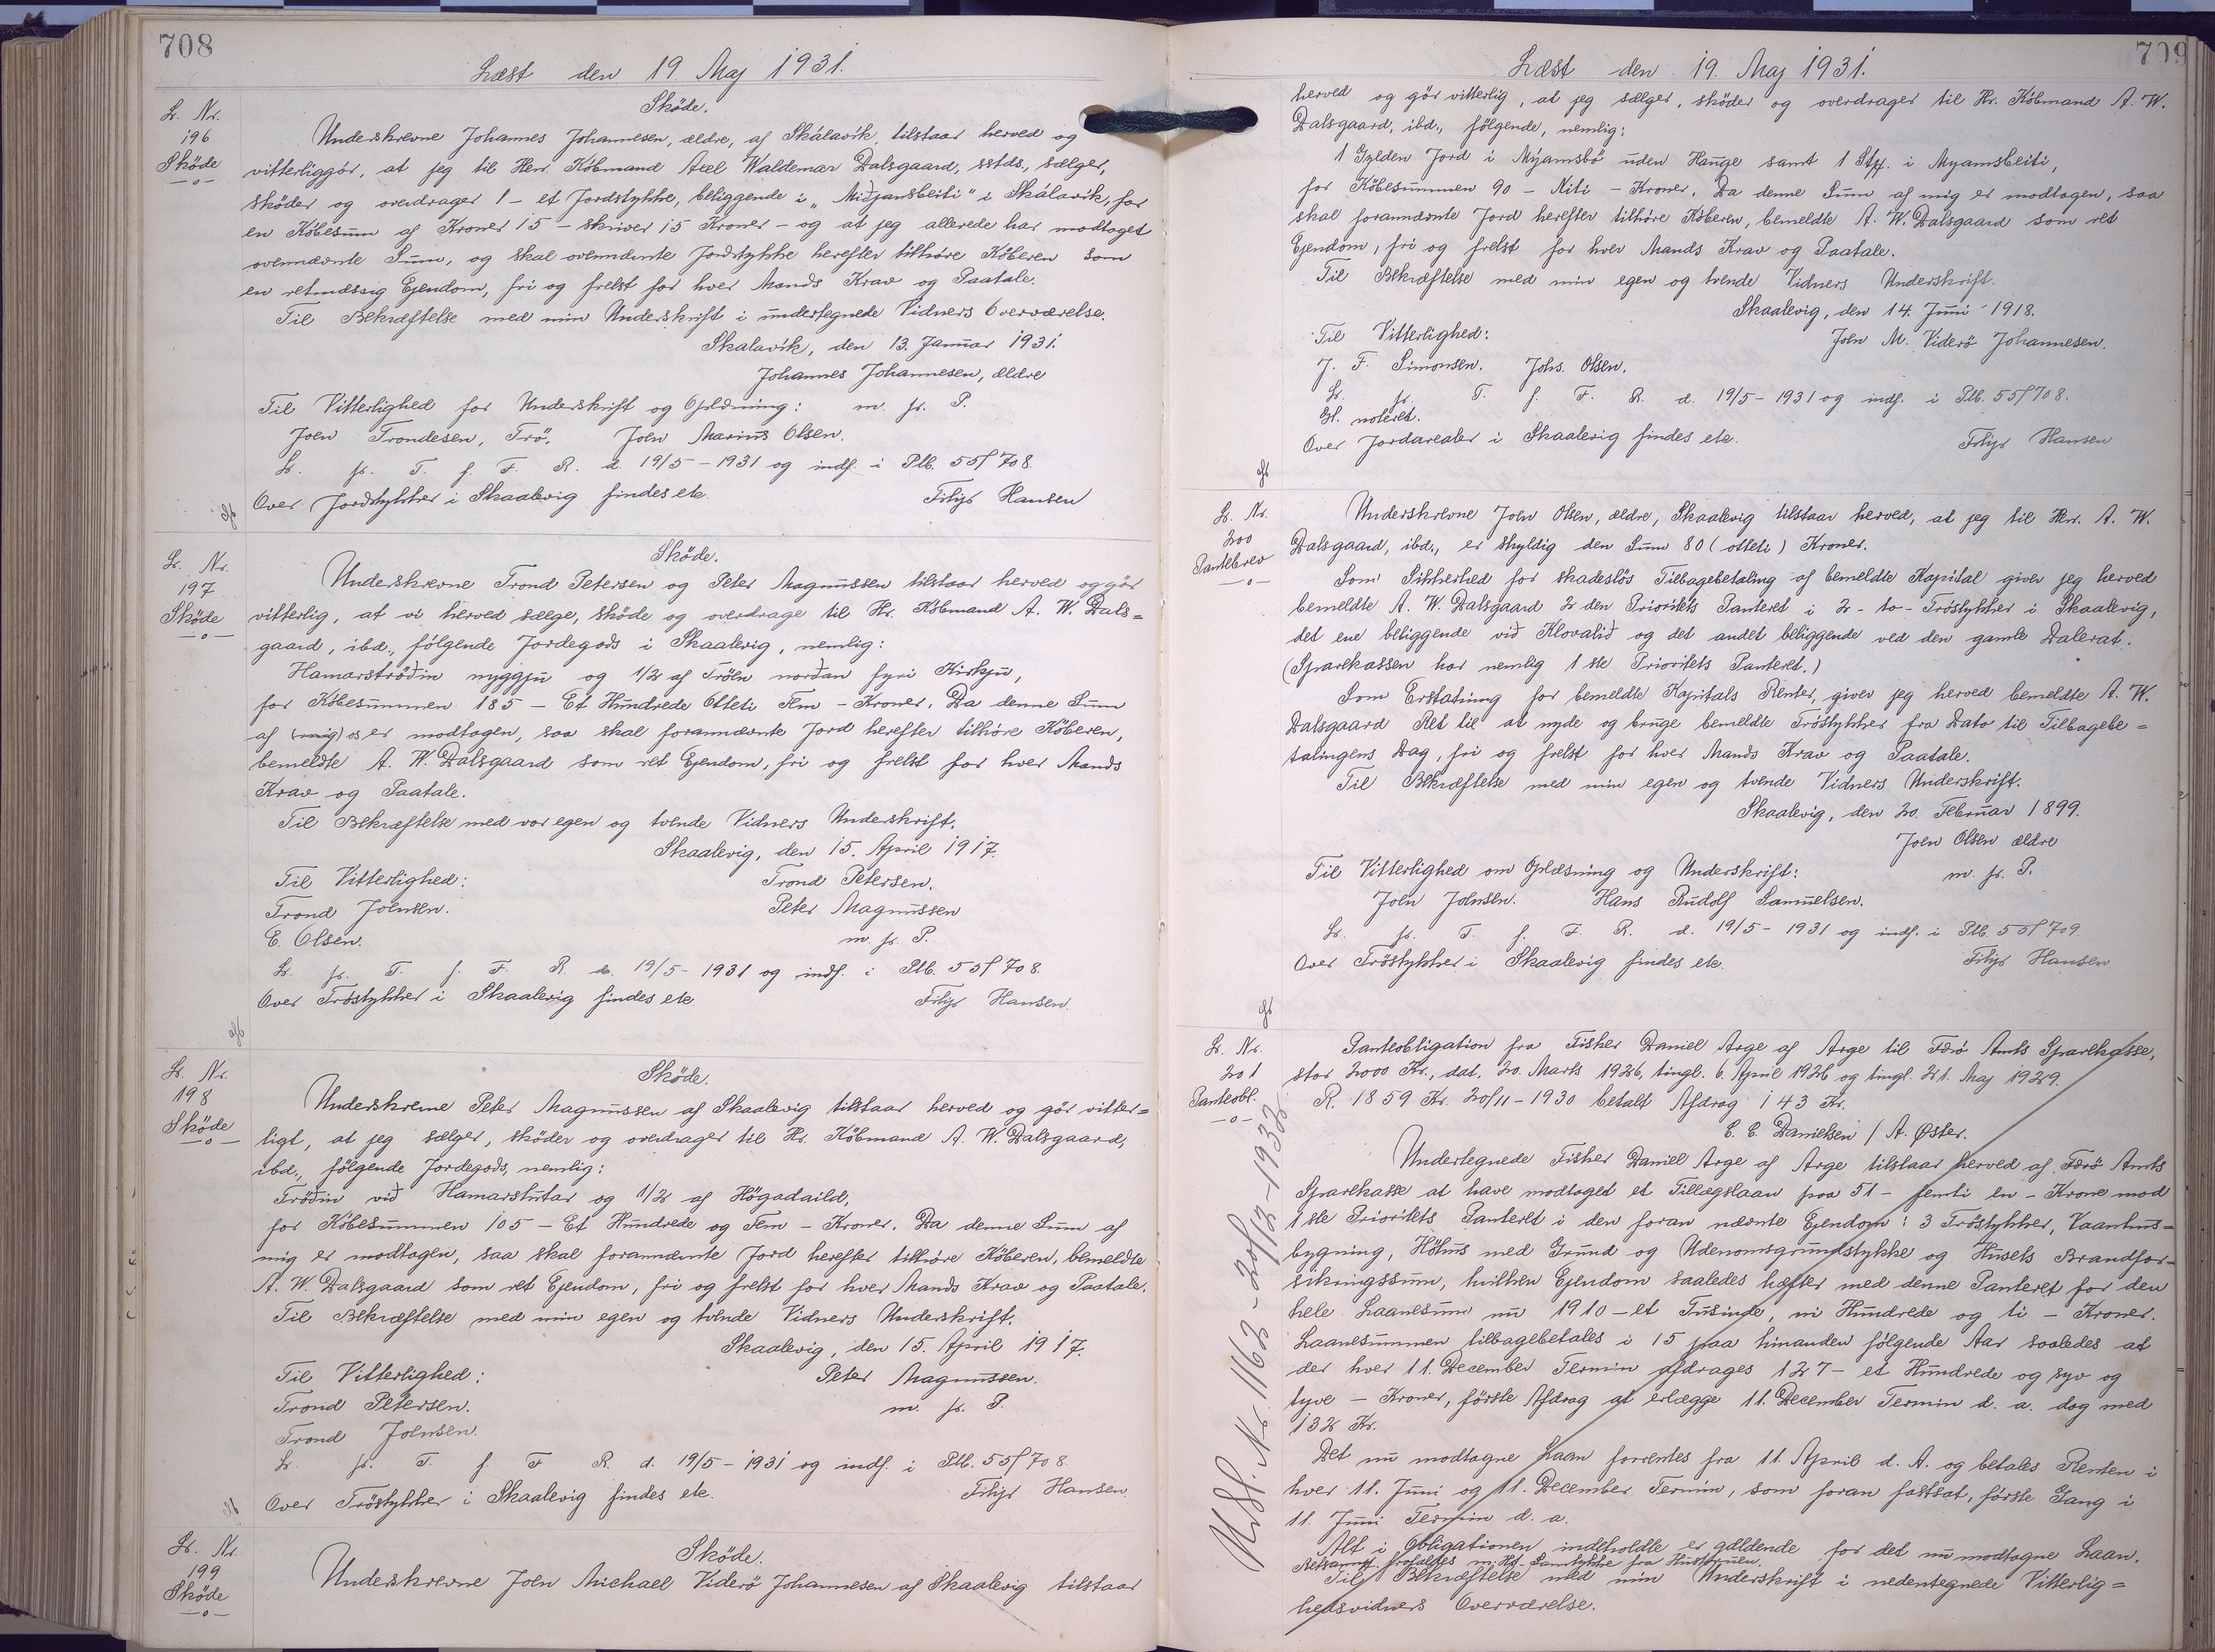 708
Læst den 19. Maj 1931.
Lb. Nr.
196
Sköde
Sköde.
Underskrevne Johannes Johannesen, ældre, af Skálavík, tilstaar herved og
vitterliggör, at jeg til Herr Köbmand Axel Waldemar Dalsgaard, sstds., sælger,
sköder og overdrager 1 - et Jordstykke, beliggende i „Miðjansbeiti" i Skálavík, for
en Köbesum af Kroner 15 - skriver 15 Kroner - og at jeg allerede har modtaget
ovennævnte Sum, og skal ovennævnte Jordstykke herefter tilhöre Köberen som
en retmæssig Ejendom, fri og frelst for hver Mands Krav og Paatale.
Til Bekræftelse med min Underskrift i undertegnede Vidners Overværelse.
Skalavík, den 13. Januar 1931.
Johannes Johannesen, ældre
Til Vitterlighed for Underskrift og Opldning: m. p. P.
Joen Trondesen, Trö. Joen Marius Olsen.
L. p. T. f. F. R. d. 19/5 - 1931 og indf. i Plb. 55f 708.
Over Jordstykker i Skaalevig findes etc. Filip Hansen
Lb. Nr.
197
Sköde
Sköde.
Underskrevne Trond Petersen og Peter Magnussen tilstaar herved og gör
vitterlig, at vi herved sælge, sköde og overdrage til Hr. Köbmand A. W. Dals=
gaard, ibd., fölgende Jordegods i Skaalevig, nemlig:
Hamarströðin nyggju og 1/2 af Tröln norðan fyri Kirkju,
for Köbesummen 185 - Et Hundrede Otteti Fem - Kroner. Da denne Sum
af (mig) os er modtagen, saa skal forannævnte Jord herefter tilhöre Köberen,
bemeldte A. W. Dalsgaard som ret Ejendom, fri og frelst for hver Mands
Krav og Paatale.
Til Bekræftelse med vor egen og tvende Vidners Underskrift.
Skaalevig, den 15. April 1917.
Til Vitterlighed: Trond Petersen.
Trond Joensen. Peter Magnussen
E. Olsen. m. p. P.
L. p. T. f. F. R. d. 19/5 - 1931 og indf. i Plb. 55f 708.
Over Tröstykker i Skaalevig findes etc. Filip Hansen.
Lb. Nr.
198
Sköde
Sköde.
Underskrevne Peter Magnussen af Skaalevig tilstaar herved og gör vitter=
ligt, at jeg sælger, sköder og overdrager til Hr. Köbmand A. W. Dalsgaard,
ibd., fölgende Jordegods, nemlig:
Tröðin við Hamarstutar og 1/2 af Högadaild,
for Köbesummen 105 - Et Hundrede og Fem - Kroner. Da denne Sum af
mig er modtagen, saa skal forannævnte Jord herefter tilhöre Köberen, bemeldte
A. W. Dalsgaard som ret Ejendom, fri og frelst for hver Mands Krav og Paatale.
Til Bekræftelse med min egen og tvende Vidners Underskrift.
Skaalevig, den 15. April 1917.
Til Vitterlighed: Peter Magnussen.
Trond Petersen. m. p. P.
Trond Joensen.
L. p. T. f. F. R. d. 19/5 - 1931 og indf. i Plb. 55f 708.
Over Tröstykker i Skaalevig findes etc. Filip Hansen.
Lb. Nr.
199
Sköde
Sköde.
Underskrevne Joen Michael Viderö Johannesen af Skaalevig tilstaar
709
Læst den 19. Maj 1931.
herved og gör vitterlig, at jeg sælger, sköder og overdrager til Hr. Köbmand A. W.
Dalsgaard, ibd., fölgende, nemlig:
1 Gylden Jord i Mýamsbö uden Hauge samt 1 Stk. i Myamsbeiti,
for Köbesummen 90 - Niti - Kroner. Da denne Sum af mig er modtagen, saa
skal forannævnte Jord herefter tilhöre Köberen, bemeldte A. W. Dalsgaard som ret
Ejendom, fri og frelst for hver Mands Krav og Paatale.
Til Bekræftelse med min egen og tvende Vidners Underskrift.
Skaalevig, den 14. Juni 1918.
Til Vitterlighed: Joen M. Viderö Johannesen.
J. F. Simonsen. Johs. Olsen.
L. p. T. f. F. R. d. 19/5 - 1931 og indf. i Plb. 55f 708.
Gl. noteret.
Over Jordarealer i Skaalevig findes etc. Filip Hansen
Lb. Nr.
200
Pantebrev
Underskrevne Joen Olsen, ældre, Skaalevig tilstaar herved, at jeg til Herr. A. W.
Dalsgaard, ibd., er skyldig den Sum 80 (otteti) Kroner.
Som Sikkerhed for skadeslös Tilbagebetaling af bemeldte Kapital giver jeg herved
bemeldte A. W. Dalsgaard 2 den Prioritets Panteret i 2 - to - Tröstykker i Skaalevig,
det ene beliggende við Klovalið og det andet beliggende ved den gamle Dalerat.
(Sparekassen har nemlig 1 ste Prioritets Panteret.)
Som Erstatning for bemeldte Kapitals Renter, giver jeg herved bemeldte A. W.
Dalsgaard Ret til at nyde og bruge bemeldte Tröstykker fra Dato til Tilbagebe=
talingens Dag, fri og frelst for hver Mands Krav og Paatale.
Til Bekræftelse med min egen og tvende Vidners Underskrift.
Skaalevig, den 20. Februar 1899.
Joen Olsen ældre
Til Vitterlighed om Oplæsning og Underskrift: m. p. P.
Joen Joensen. Hans Rudolf Samuelsen.
L. p. T. f. F. R. d. 19/5 - 1931 og indf. i Plb. 55f 709.
Over Tröstykker i Skaalevig findes etc. Filip Hansen
Lb. Nr.
201
Panteobl.
Panteobligation fra Fisker Daniel Arge af Arge til Færö Amts Sparekasse,
stor 2000 Kr., dat. 20. Marts 1926, tingl. 6. April 1926 og tingl. 21. Maj 1929.
R. 1859 Kr. 20/11 - 1930 betalt Afdrag 143 Kr.
C. C. Danielsen / A. Øster.
Undertegnede Fisker Daniel Arge af Arge tilstaar herved af Færö Amts
Sparekasse at have modtaget et Tillægslaan paa 51 - femti en - Krone mod
1 ste Prioritets Panteret i den foran nævnte Ejendom: 3 Tröstykker, Vaanhus=
bygning, Höhus med Grund og Udenomsgrundstykke og Husets Brandfor=
sikringssum, hvilken Ejendom saaledes hæfter med denne Panteret for den
hele Laanesum nu 1910 - et Tusinde, ni Hundrede og ti - Kroner.
Laanesummen tilbagebetales i 15 paa hinanden fölgende Aar saaledes at
der hver 11. December Termin afdrages 127 - et Hundrede og syv og
tyve - Kroner, förste Afdrag at erlægge 11. December Termin d. a. dog med
132 Kr.
Det nu modtagne Laan forrentes fra 11. April d. A. og betales Renten i
hver 11. Juni og 11. December Termin, som foran fastsat, förste Gang i
11. Juni Termin d. a.
Alt i Obligationen indeholdte er gældende for det nu modtagne Laan.
Til Bekræftelse med min Underskrift i nedentegnede Vitterlig=
hedsvidners Overværelse.
Usl. Nr. 1162 - 20/12 - 1932